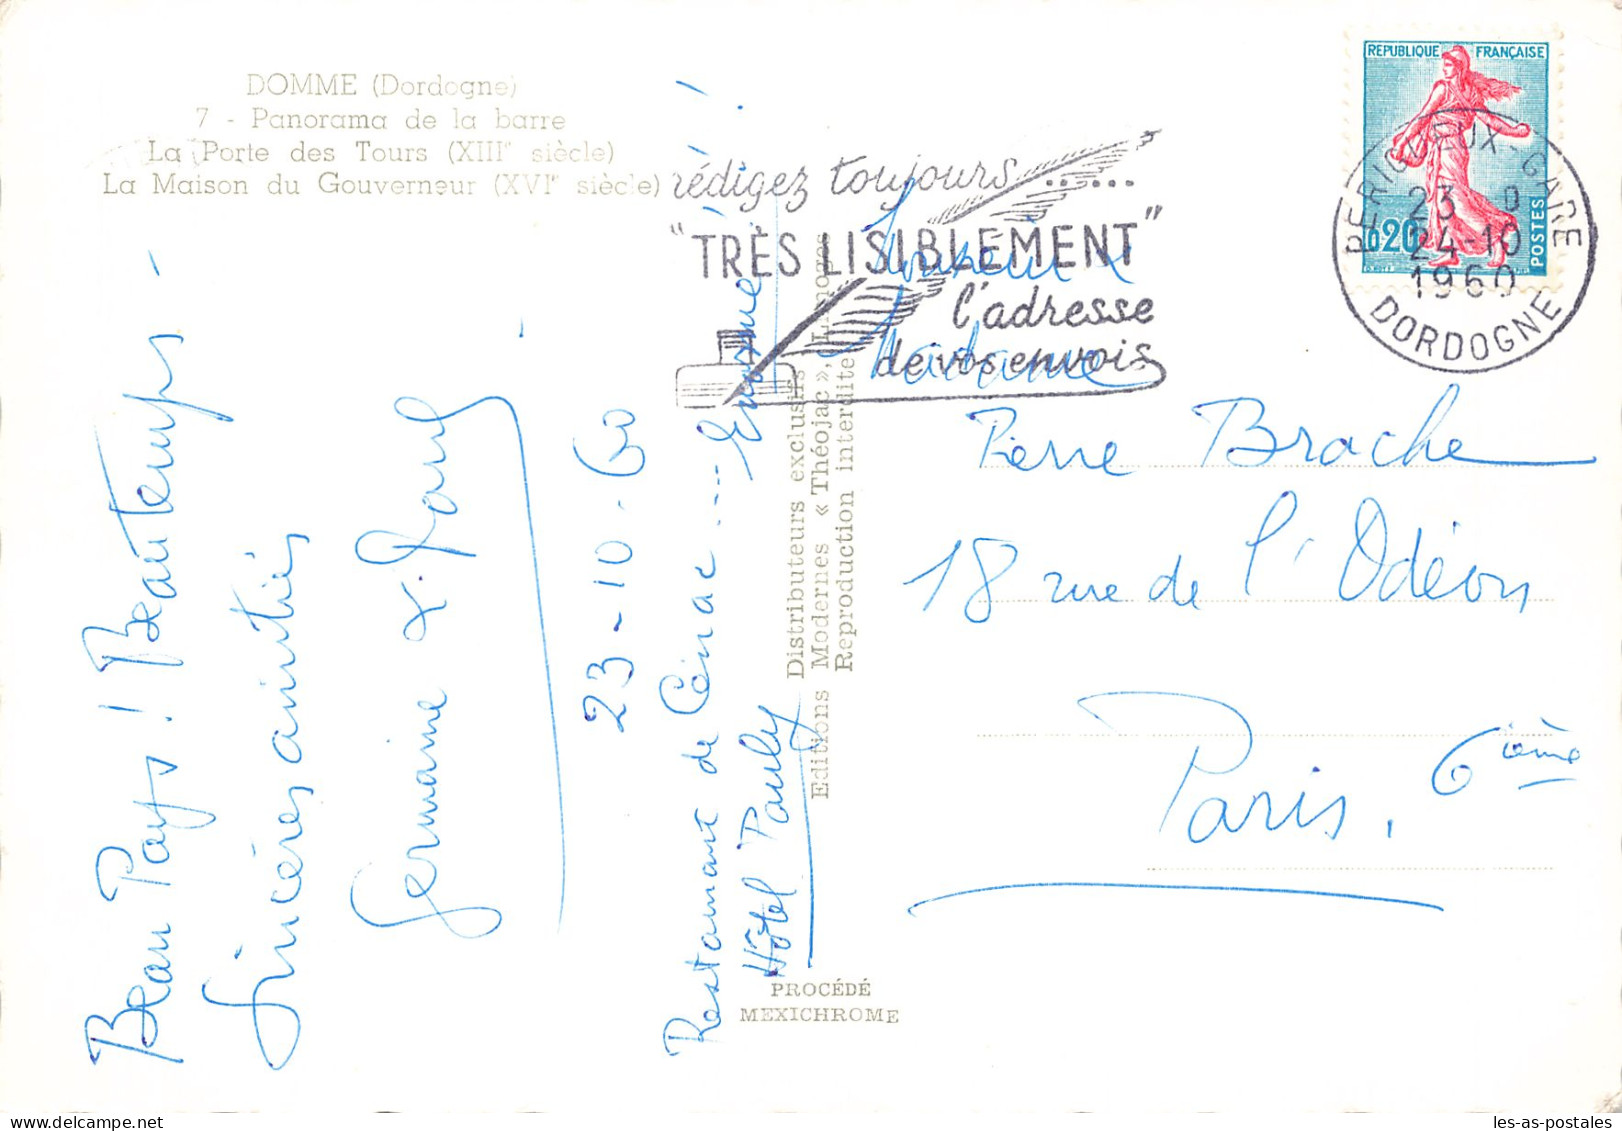 DOMME (Dordogne)
7 - Panorama de la barre
La Porte des Tours (XIIIe siècle)
La Maison du Gouverneur (XVIe siècle)
rédigez toujours......
"TRÈS LISIBLEMENT"
l'adresse
de vos envois
REPUBLIQUE FRANÇAISE
0,20
POSTES
PERIGUEUX-GARE
23 D
24-10
1960
DORDOGNE
Beau Pays ! Beau temps -
Sincères amitiés
Germaine &
23-10-60
Restaurant de Cénac ---- !
Hôtel Pauly
Enormé !
Editions Modernes « Théojac », Limoges
Distributeurs exclusifs
Reproduction interdite
Monsieur &
Madame
Pierre Brache
18 rue de l'Odéon
Paris. 6ième
PROCÉDÉ
MEXICHROME
les-as-postales